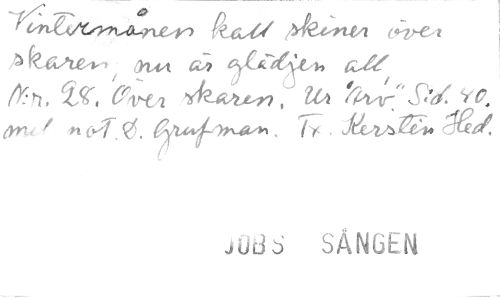 Vintermånen kall skiner över
skaren, nu är glädjen all,
N:r. 28. Över skaren. Ur "Arv". Sid. 40.
mel. not. D. Grufman. Tx. Kerstin Hed.
JOBS SÅNGEN